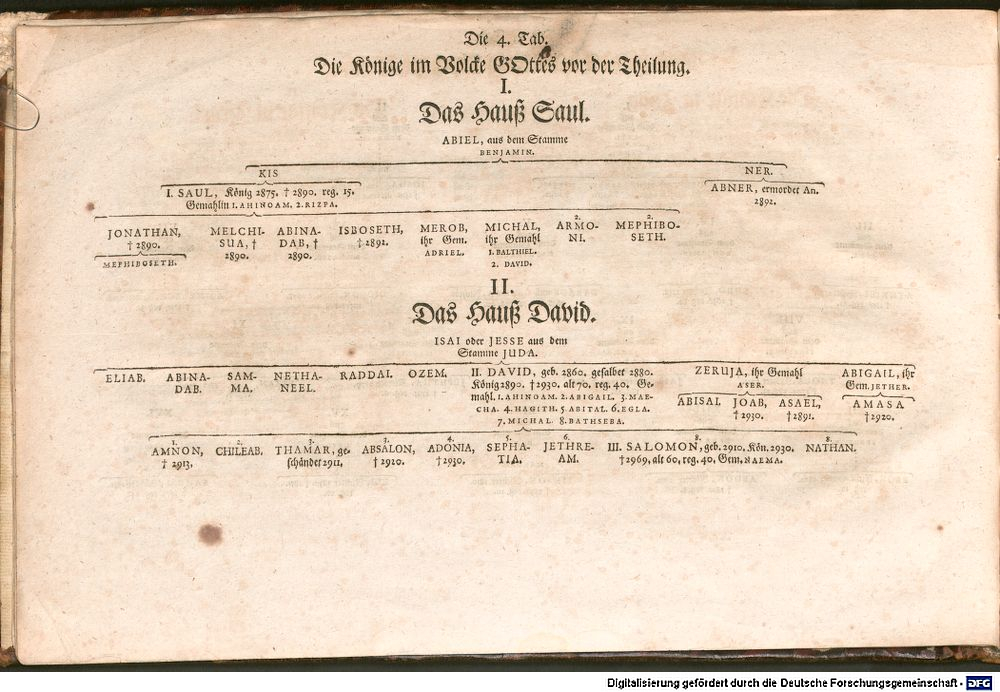 Die 4. Tab.
Die Könige im Volcke GOttes vor der Theilung.
I.
Das Hauß Saul.
ABIEL, aus dem Stamme
BENJAMIN.
KIS
NER.
I. SAUL, König 2875. † 2890. reg. 15.
Gemahlin 1. AHINOAM. 2. RIZPA.
ABNER, ermordet An.
2892.
JONATHAN,
† 2890.
MEPHIBOSETH.
MELCHI-
SUA, †
2890.
ABINA-
DAB, †
2890.
ISBOSETH,
† 2892.
MEROB,
ihr Gem.
ADRIEL.
MICHAL,
ihr Gemahl
1. BALTHIEL.
2. DAVID.
2.
ARMO-
NI.
2.
MEPHIBO-
SETH.
II.
Das Hauß David.
ISAI oder JESSE aus dem
Stamme JUDA.
ELIAB.
ABINA-
DAB.
SAM-
MA.
NETHA-
NEEL.
RADDAI.
OZEM.
II. DAVID, geb. 2860. gesalbet 2880.
König 2890. † 2930. alt 70, reg. 40. Ge-
mahl. 1. AHINOAM. 2. ABIGAIL. 3. MAE-
CHA. 4. HAGITH. 5 ABITAL. 6. EGLA.
7. MICHAL. 8. BATHSEBA.
ZERUJA, ihr Gemahl
ASER.
ABISAI.
JOAB,
† 2930.
ASAEL,
† 2891.
ABIGAIL, ihr
Gem. JETHER.
AMASA
† 2920.
1.
AMNON,
† 2913.
2.
CHILEAB.
3.
THAMAR, ge-
schändet 2911,
3.
ABSALON,
† 2920.
4.
ADONIA,
† 2930.
5.
SEPHA-
TIA.
6.
JETHRE-
AM.
8.
III. SALOMON, geb. 2910. Kön. 2930.
† 2969, alt 60, reg. 40, Gem. NAEMA.
8.
NATHAN.
Digitalisierung gefördert durch die Deutsche Forschungsgemeinschaft - DFG